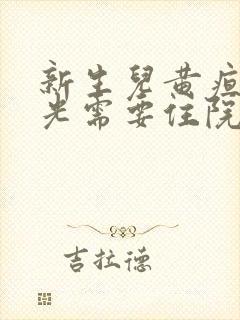 新生儿黄疸
光需要住院
吉拉德